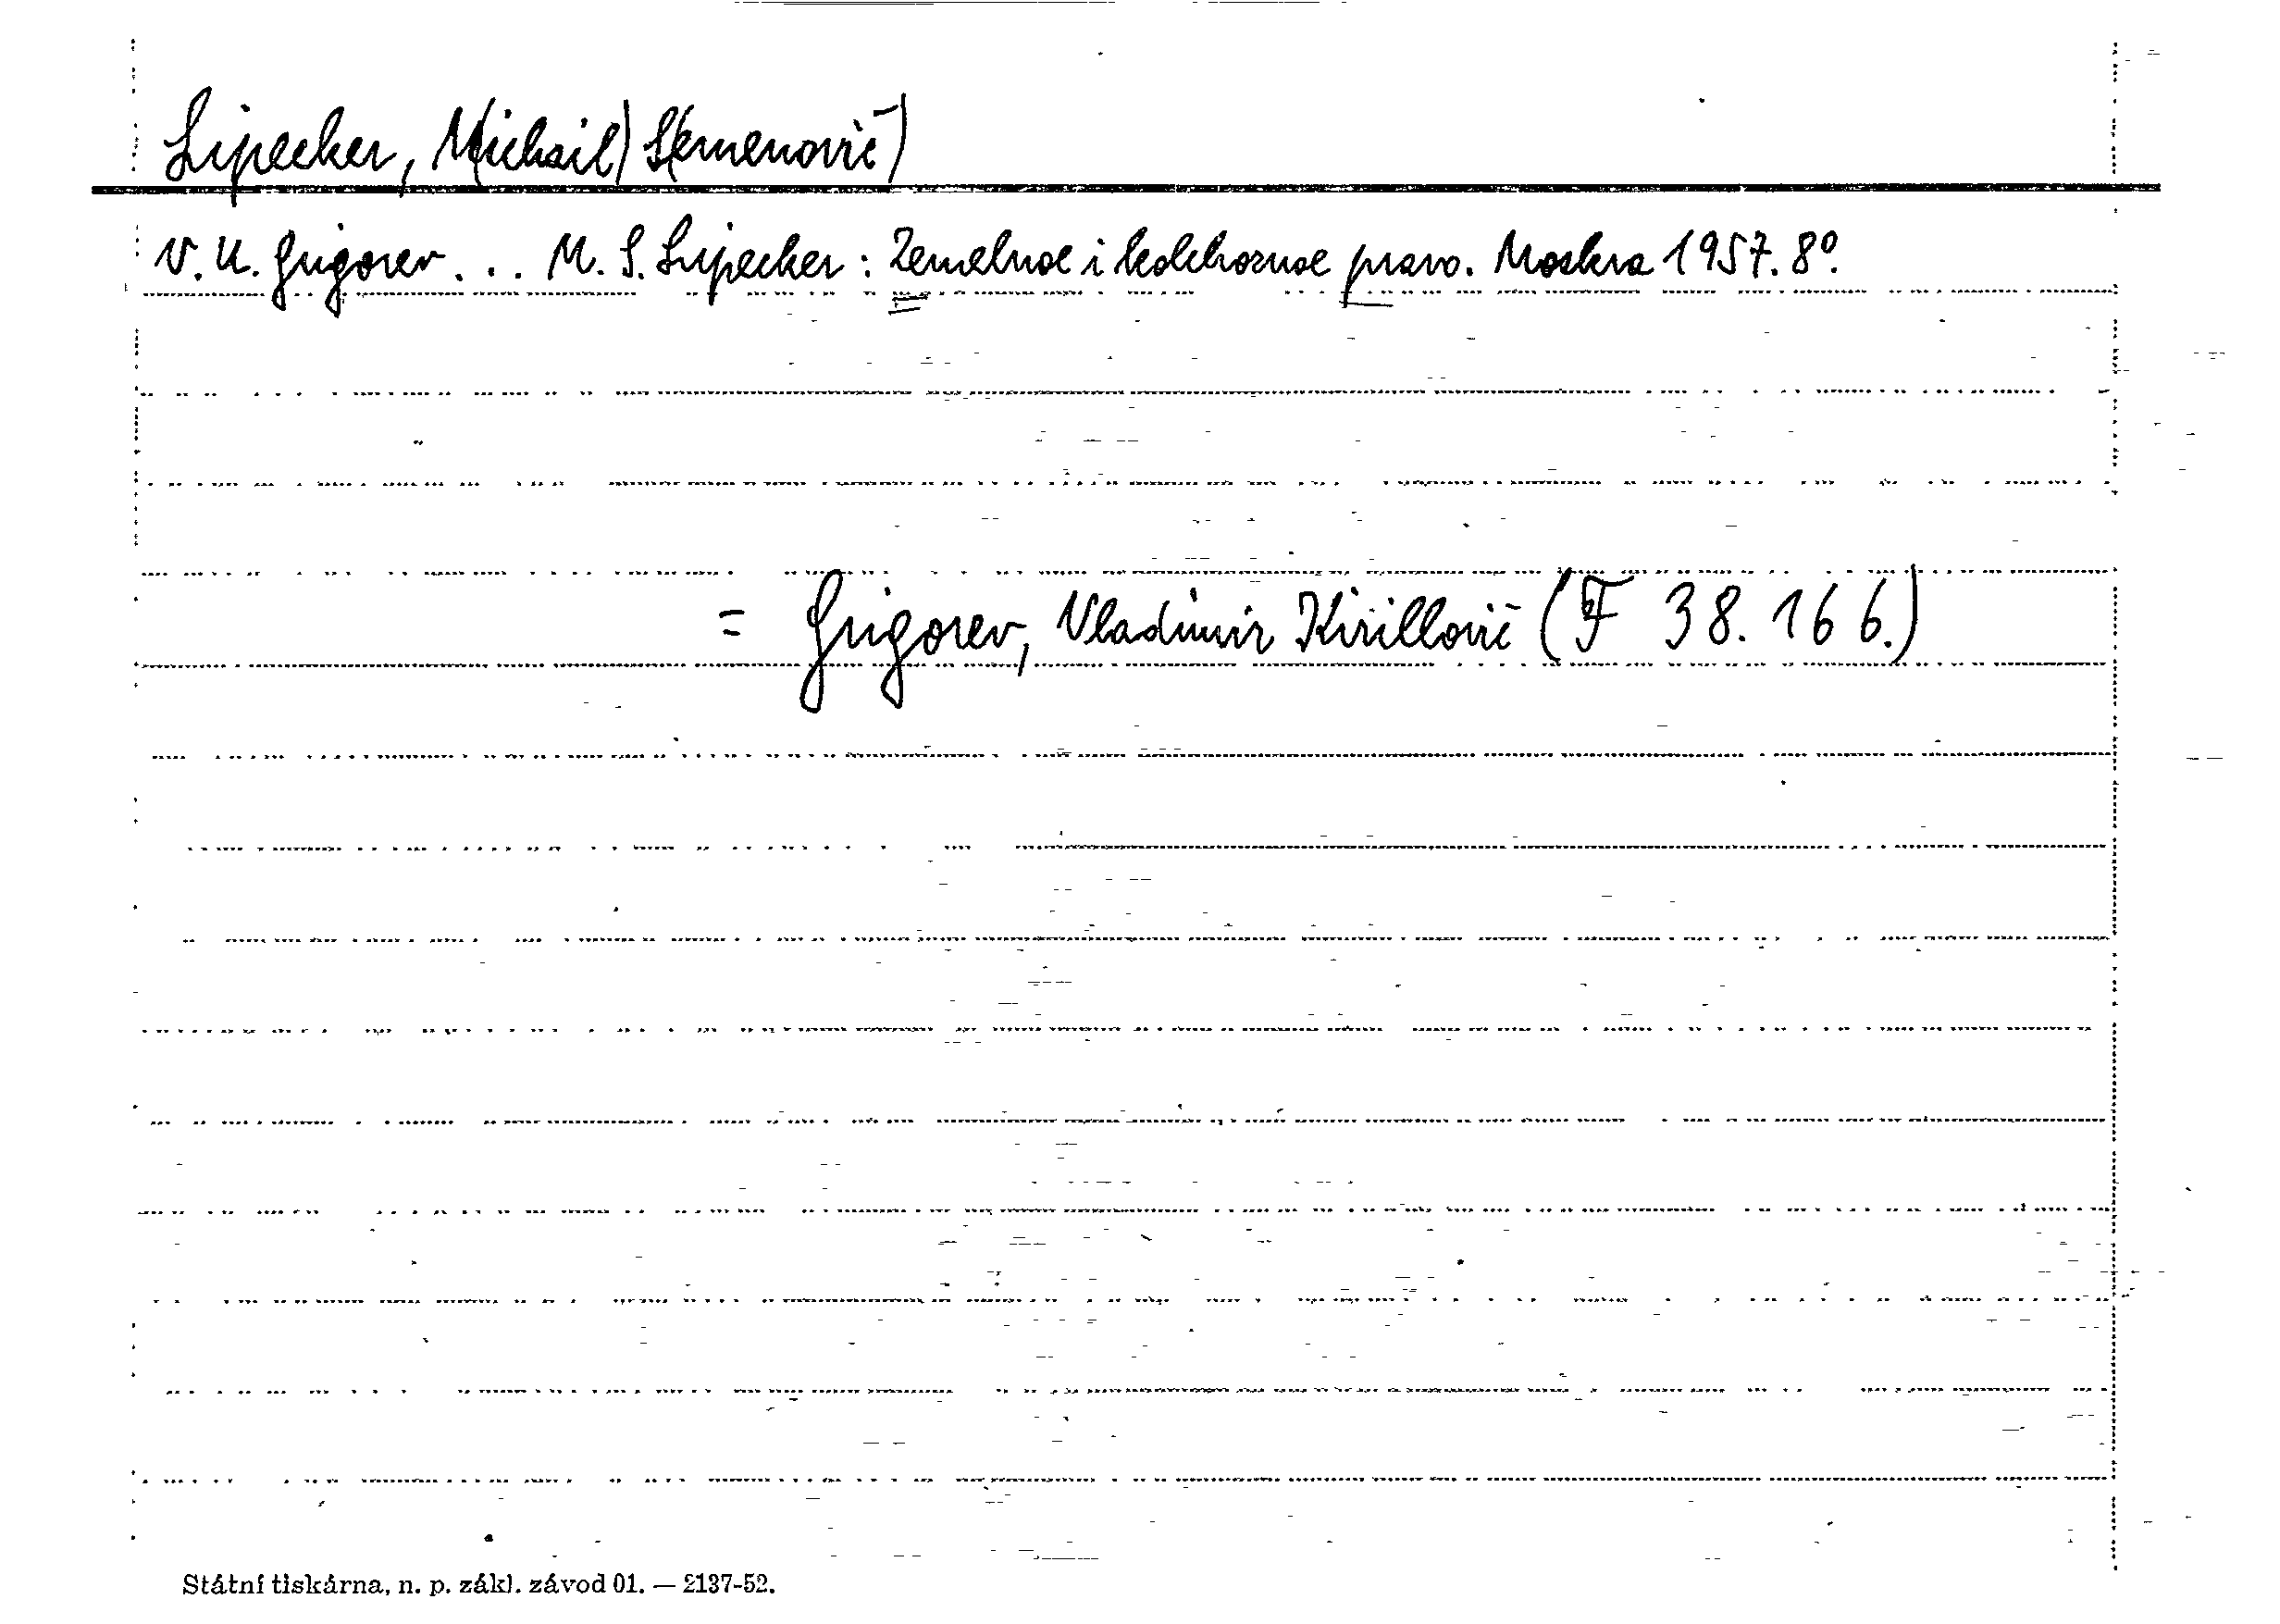 Lipecker, M(ichail) S(emenovič)
V. K. Grigorev... M. S. Lipecker: Zemelnoe i kolchoznoe pravo. Moskva 1957. 8º.
= Grigorev, Vladimir Kirillovič (F 38.166.)
Státní tiskárna, n. p. zákl. závod 01. — 2137-52.